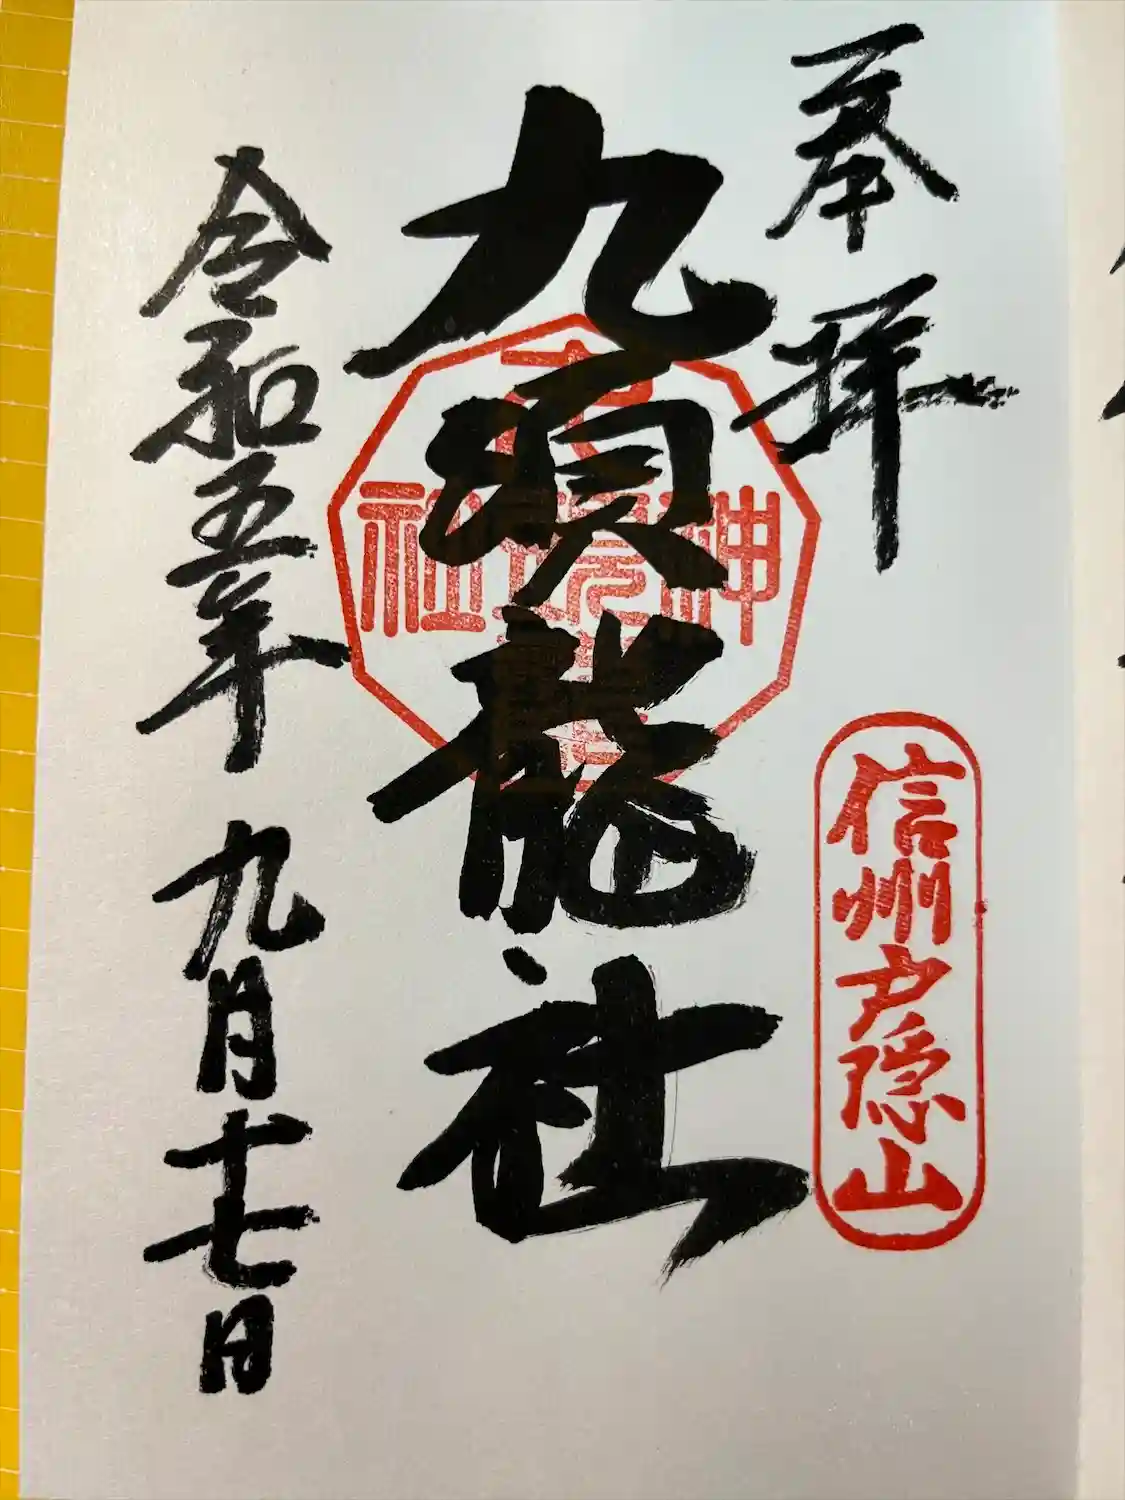 奉拝
信州戸隠山
九頭龍社
神
社
令和五年九月十七日